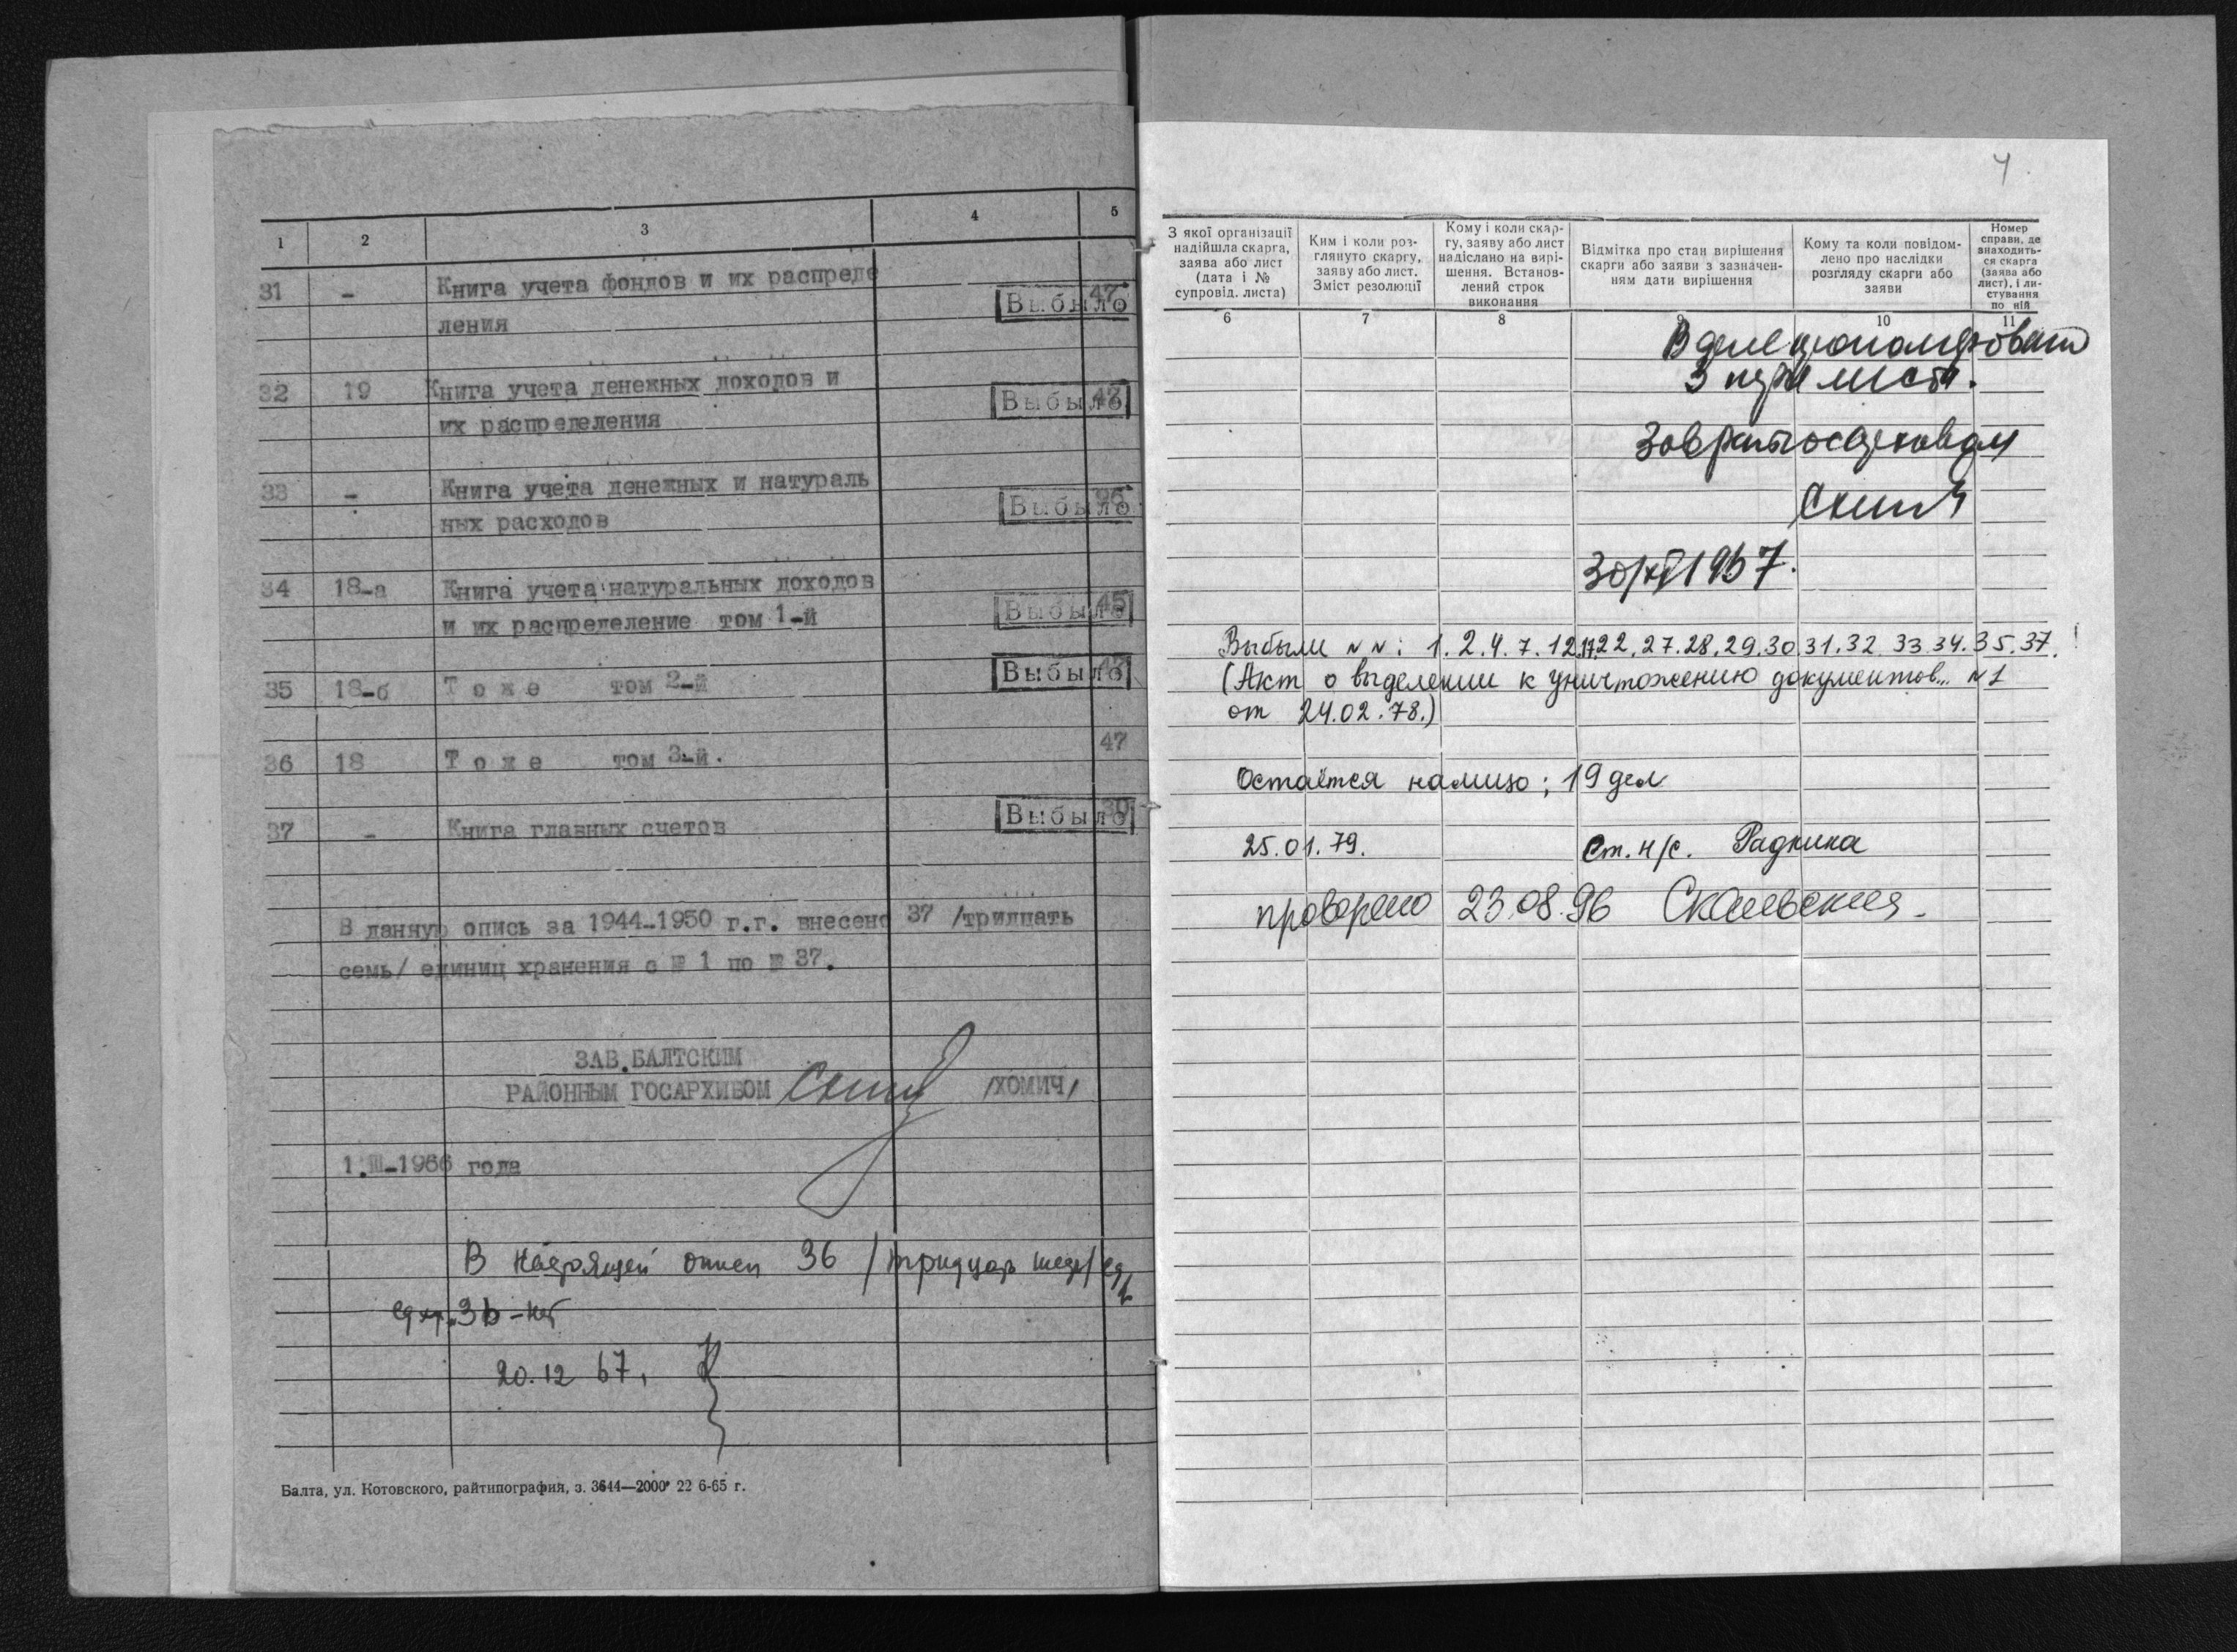 1 2 3 4 5
31 - Книга учета фондов и их распреде
ления Выбыло 47
32 19 Книга учета денежных доходов и
их распределения Выбыло 47
33 - Книга учета денежных и натураль
ных расходов Выбыло 96
34 18-а Книга учета натуральных доходов
и их распределение том 1-й Выбыло 45
35 18-б Т о ж е том 2-й Выбыло
36 18 Т о ж е том 3-й. 47
37 - Книга главных счетов Выбыло
В данную опись за 1944-1950 г.г. внесено 37 /тридцать
семь/ единиц хранения с № 1 по № 37.
ЗАВ.БАЛТСКИМ
РАЙОННЫМ ГОСАРХИВОМ /ХОМИЧ/
1.III-1966 года
В настоящей описи 36 /тридцать шесть/ ед.
ед.хр. 36 - нет
20.12 67.
Балта, ул. Котовского, райтипография, з. 3644—2000 22 6-65 г.
4
З якої організації надійшла скарга, заява або лист (дата і № супровід. листа)
Ким і коли роз-глянуто скаргу, заяву або лист. Зміст резолюції
Кому і коли скар-гу, заяву або лист надіслано на вирі-шення. Встанов-лений строк виконання
Відмітка про стан вирішення скарги або заяви з зазначен-ням дати вирішення
Кому та коли повідом-лено про наслідки розгляду скарги або заяви
Номер справи, де знаходить-ся скарга (заява або лист), і ли-стування по ній
6 7 8 9 10 11
В деле пронумеровано
3 листа.
Зав райгосархивом
30/XI 1967.
Выбыли NN: 1. 2. 4. 7. 12. 17. 22. 27. 28. 29. 30 31. 32 33 34. 35. 37.
(Акт о выделении к уничтожению документов... N 1
от 24.02.78.)
Остаётся налицо: 19 дел
25.01.79. Ст. н/с. Радкина
проверено 23.08.96